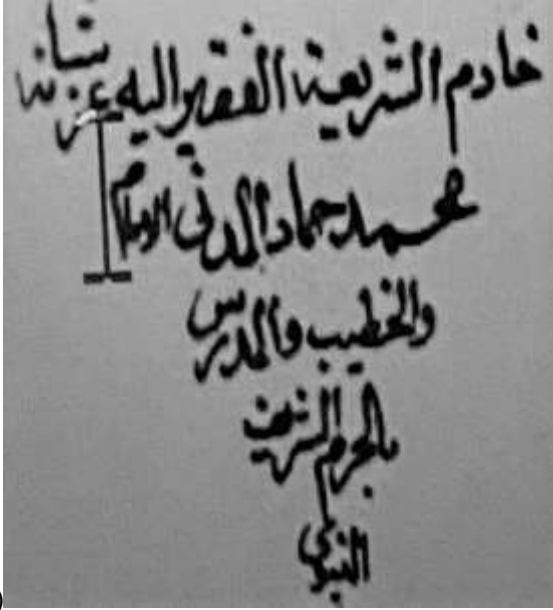 خادم الشريعة الفقير اليه عز شانه
محمد حماد المدني الامام
والخطيب والمدرس
بالحرم الشريف
النبوي